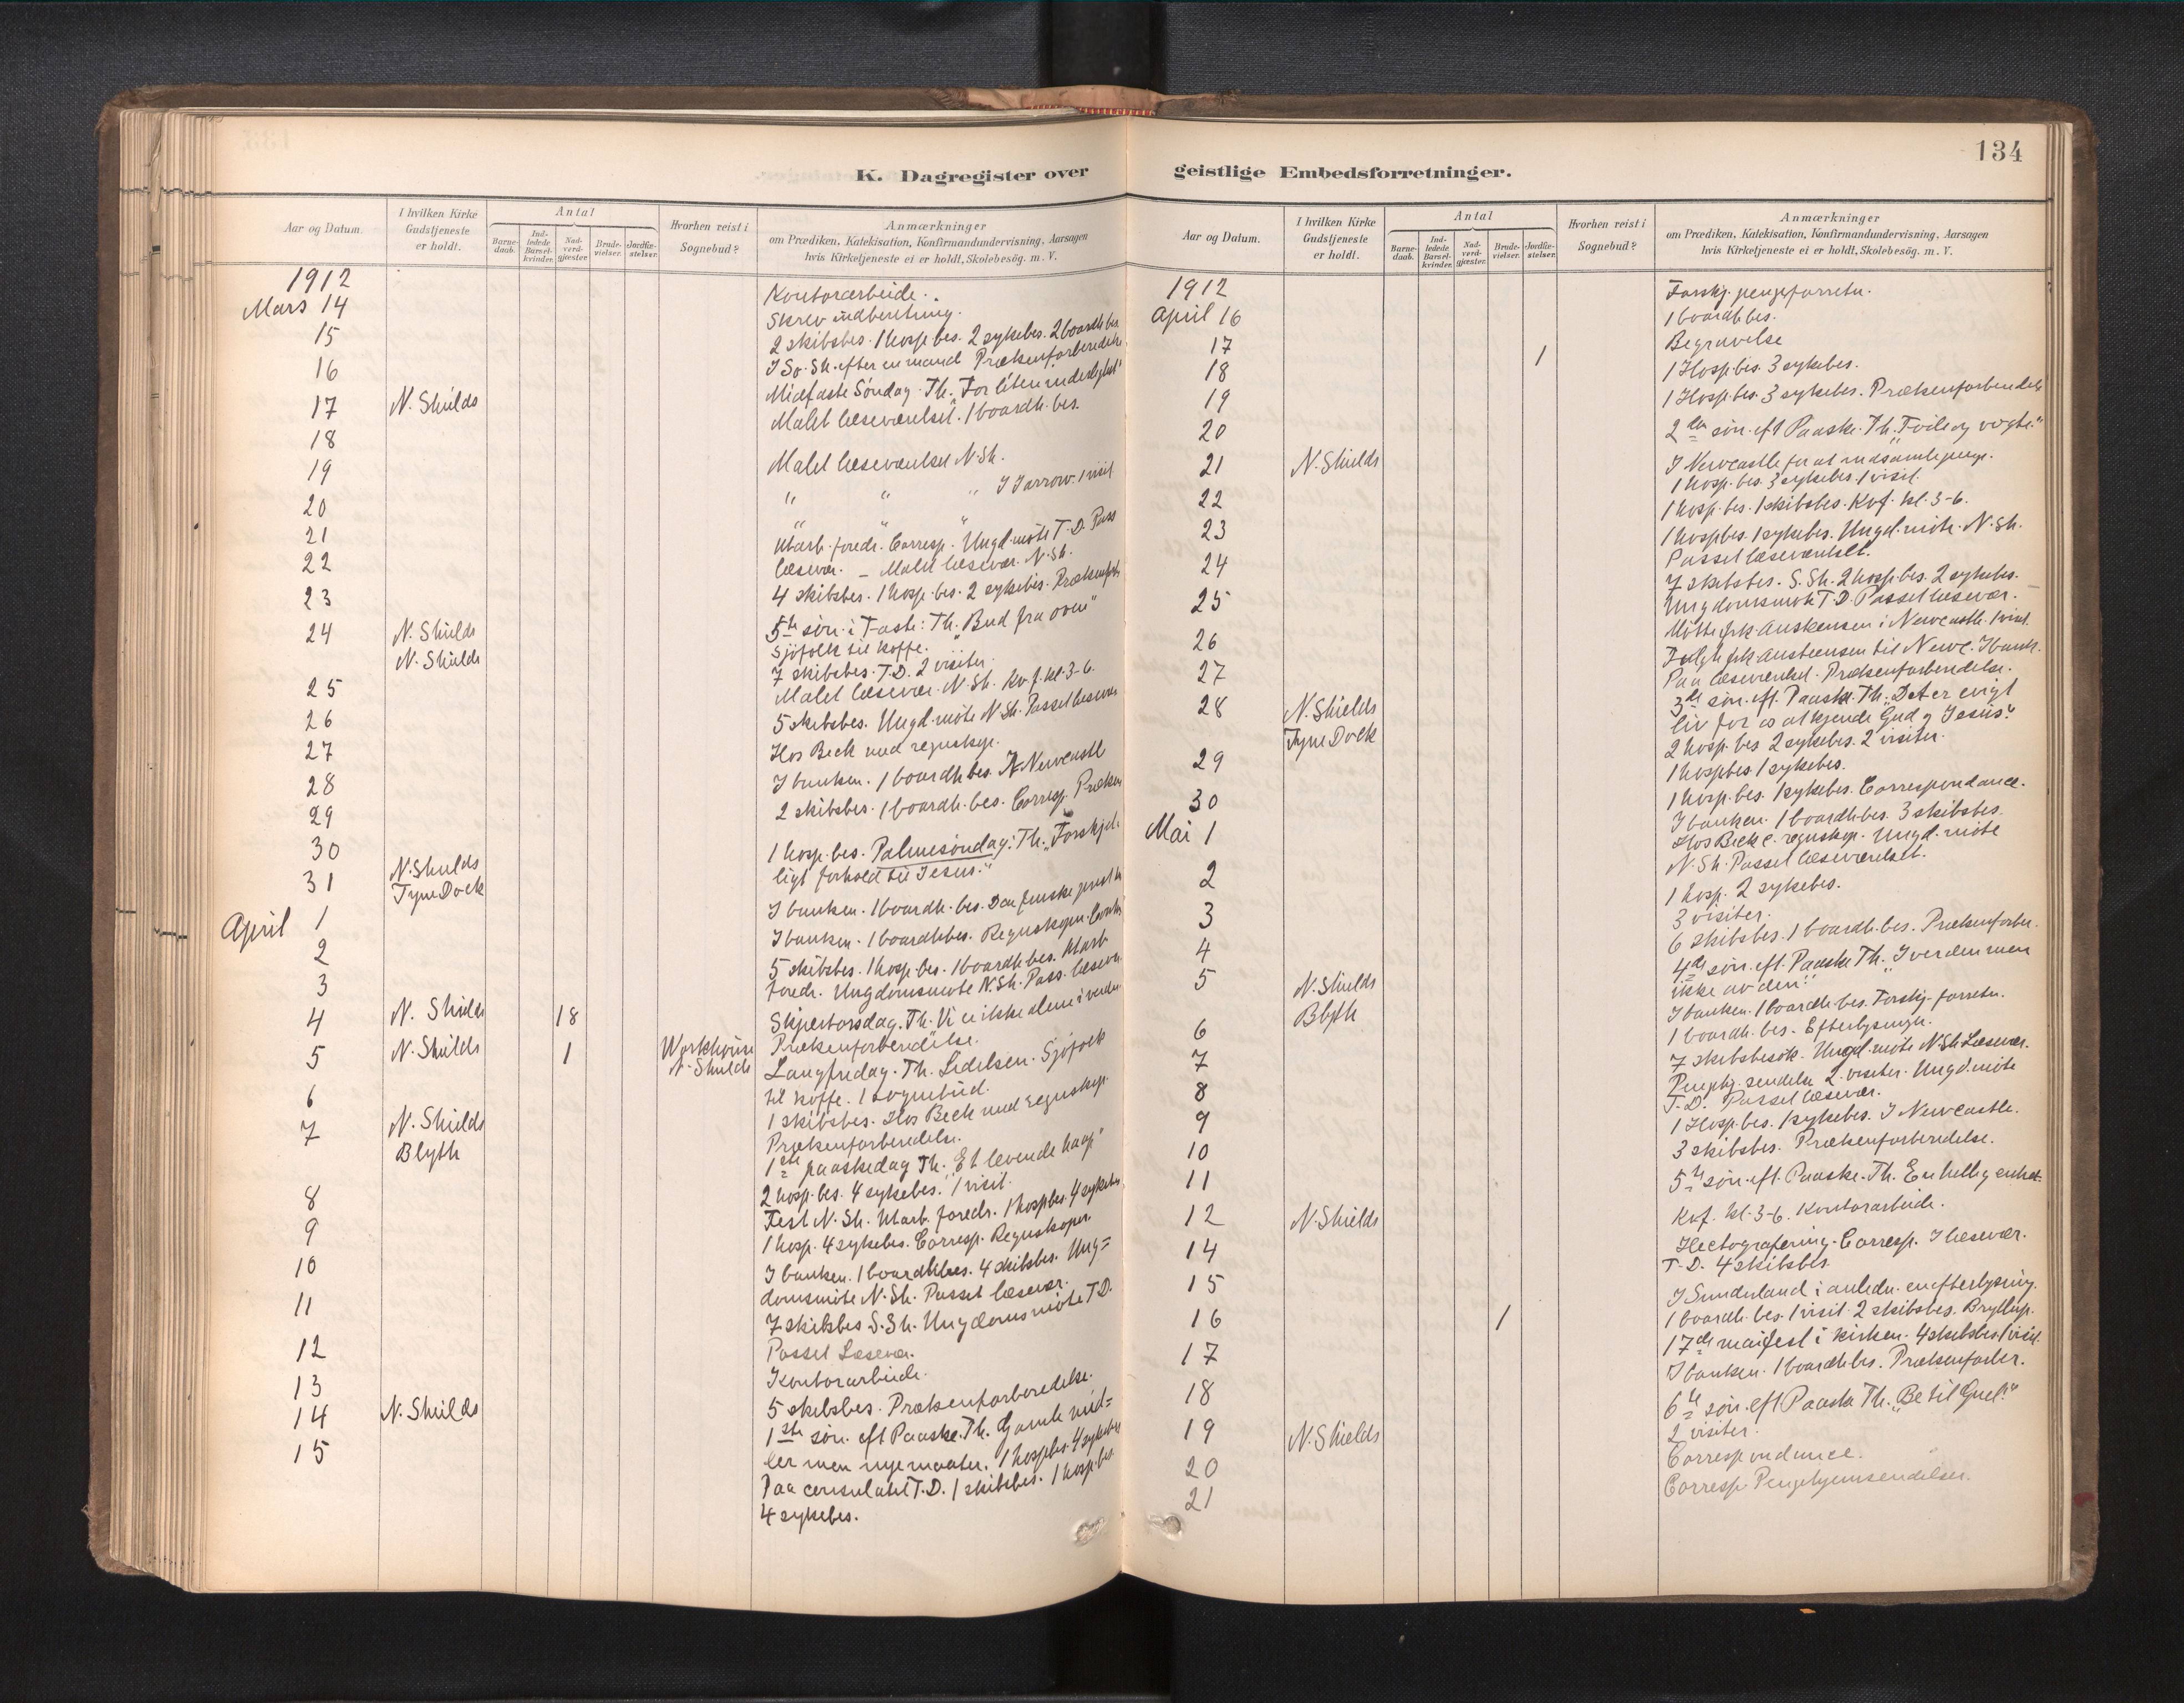 134
K. Dagregister over
geistlige Embedsforretninger.
Aar og Datum.
I hvilken Kirke
Gudstjeneste
er holdt.
Antal
Barne-
daab.
Ind-
ledede
Barsel-
kvinder.
Nad-
verd-
gjæster.
Brude-
vielser.
Jordfæ-
stelser.
Hvorhen reist i
Sognebud?
Anmærkninger
om Prædiken, Katekisation, Konfirmandundervisning, Aarsagen
hvis Kirketjeneste ei er holdt, Skolebesög. m. V.
1912
Kontorarbeide.
Mars 14
Skrev indberetning.
15
2 skibsbes. 1 hosp. bes. 2 sykebes. 2 boardh bes
16
I So. Sh. efter en mand Prækenforberedelse
17 N. Shields
Midfaste Söndag. Th.
Malet læseværelset. 1 boardh. bes.
18
19
Malet læseværelset N. Sh.
20
" " " I Jarrow. 1 visit
21
" " "
22
Utarb. foredr. Corresp. Ungd. möte T. D. Pass
læsevær. – Malet læsevær. N. Sh.
23
4 skibsbes. 1 hosp. bes. 2 sykebes.
24 N. Shields
5te sön. i Faste: Th. "Bud fra oven"
N. Shields
Sjöfolk til koffe.
25
7 skibsbes. T. D. 2 visiter.
26
Malet læsevær. N. Sh. Kvf. kl. 3-6.
27
5 skibsbes. Ungd. möte N. Sh. Passet læsevær
28
Hos Beck med regnskap.
29
I banken. 1 boardh bes. Newcastle
30
2 skibsbes. 1 boardh. bes. Corresp. Præken
31 N. Shields
1 hosp. bes. Palmesöndag: Th. "Forskjel-
Tyne Dock
ligt forhold til Jesus."
April 1
I banken. 1 boardh. bes. Den finske prest
2
I banken. 1 boardh bes. Regnskaper.
3
5 skibsbes. 1 hosp. bes. 1 boardh bes. Utarb.
foredr. Ungdomsmöte N. Sh. Pass. læsevær
4 N. Shields 18
Skjærtorsdag. Th. Vi er ikke alene i verden
Prækenforberedelse.
5 N. Shields 1 Workhouse
N. Shields
Langfredag. Th. Lidelsen. Sjöfolk
til koffe. 1 sognebud.
6
1 skibsbes. Hos Beck med regnskap.
Prækenforberedelse.
7 N. Shields
1ste paaskedag Th. "Et levende haap"
Blyth
2 hosp. bes. 4 sykebes. 1 visit.
8
Fest N. Sh. Utarb. foredr. 1 hosp bes. 4 sykebes
9
1 hosp. 4 sykebes. Corresp. Regnskaper.
10
I banken. 1 boardhbes. 4 skibsbes. Ung=
domsmöte N. Sh. Passet læsevær.
11
7 skibsbes S. Sh. Ungdomsmöte T D.
Passet Læsevær.
12
Kontorarbeide.
13
5 skibsbes. Prækenforberedelse.
14 N. Shields
1ste sön. eft Paaske. Th. Gamle mid=
ler men nye maater. 1 hospbes. 4 sykebes
15
Paa consulatet T. D. 1 skibsbes. 1 hosp. bes.
4 sykebes.
Aar og Datum.
I hvilken Kirke
Gudstjeneste
er holdt.
Antal
Barne-
daab.
Ind-
ledede
Barsel-
kvinder.
Nad-
verd-
gjæster.
Brude-
vielser.
Jordfæ-
stelser.
Hvorhen reist i
Sognebud?
Anmærkninger
om Prædiken, Katekisation, Konfirmandundervisning, Aarsagen
hvis Kirketjeneste ei er holdt, Skolebesög. m. V.
1912
Forskj. pengeforretn.
April 16
1 boardh bes.
17 1
Begravelse
18
1 Hosp. bes. 3 sykebes.
19
1 Hosp. bes. 3 sykebes. Prækenforberedelse
20
21 N. Shields
2den sön. eft Paaske. Th.
22
I Newcastle for at indsamle penge.
1 hosp. bes. 3 sykebes. 1 visit.
23
1 hosp. bes. 1 skibsbes. Kvf. kl. 3-6.
24
1 hospbes. 1 sykebes. Ungd. möte. N. Sh.
Passet læseværelset.
25
7 skibsbes. S. Sh. 2 hosp. bes. 2 sykebes.
Ungdomsmöte T. D. Passet læsevær.
26
Mötte frk Austensen i Newcastle. 1 visit.
27
Fulgte frk Austensen til Newc. I bank.
Paa læseværelset. Prækenforberedelse.
28 N. Shields
3die sön. eft. Paaske. Th. "Det er evigt
Tyne Dock
liv for os at kjende Gud og Jesus."
29
2 hosp. bes 2 sykebes. 2 visiter.
30
1 hospbes. 1 sykebes.
Mai 1
1 hosp. bes. 1 sykebes. Correspondance.
I banken. 1 boardh bes. 3 skibsbes.
Hos Beck c. regnskap. Ungd. möte
N. Sh. Passet læseværelset.
2
1 hosp. 2 sykebes.
3
3 visiter.
4
6 skibsbes. 1 boardh. bes. Prækenforber.
5 N. Shields
4de sön. eft. Paaske Th. "I verden men
Blyth
ikke av den."
6
I banken. 1 boardh. bes. Forskj. forretn.
7
1 boardh. bes. Efterlysninger.
8
7 skibsbesök. Ungd. möte N. Sh Læsevær.
9
Pengehj. sendelse 2 visiter. Ungd. möte
T. D. Passet læsevær.
10
1 Hosp. bes. 1 sykebes. I Newcastle.
11
3 skibsbes. Prækenforberedelse.
12 N. Shields
5te sön. eft. Paaske. Th. En hellig enhet.
14
Kvf. kl. 3-6. Kontorarbeide.
15
Hectografering. Corresp. I læsevær.
T. D. 4 skibsbes.
16 1
I Sunderland i anledn. en efterlysning.
1 boardh. bes. 1 visit. 2 skibsbes. Bryllup.
17
17de maifest i kirken. 4 skibsbes. 1 visit.
18
I banken. 1 boardh bes. Prækenforber.
19 N. Shields
6te sön. eft Paaske Th. "Be til Gud."
2 visiter.
20
Correspondance.
21
Corresp. Pengehjemsendelser.